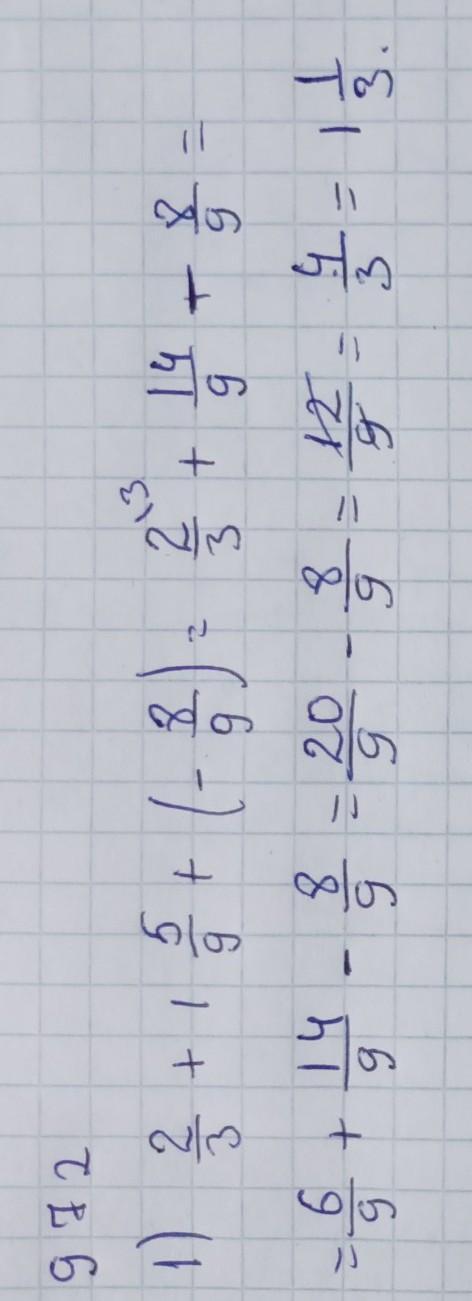 972
1) 2/3 + 1 5/9 + (- 8/9) = 2/3 \3 + 14/9 + 8/9 =
= 6/9 + 14/9 - 8/9 = 20/9 - 8/9 = 12/9 = 4/3 = 1 1/3.